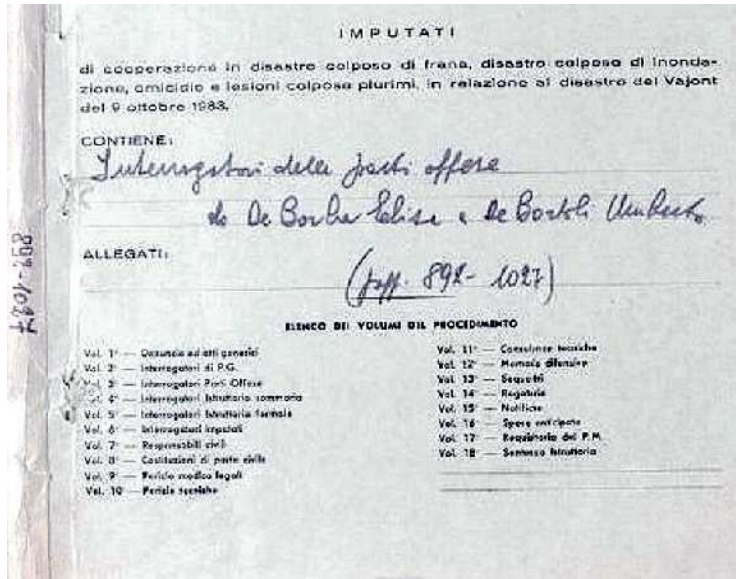 IMPUTATI
di cooperazione in disastro colposo di frana, disastro colposo di inonda-
zione, omicidio e lesioni colpose plurimi, in relazione al disastro del Vajont
del 9 ottobre 1963.
CONTIENE:
Interrogatori delle parti offese
da De Barba Elisa a De Bortoli Umberto
ALLEGATI:
(pagg. 892-1027)
892-1027
ELENCO DEI VOLUMI DEL PROCEDIMENTO
Vol. 1° — Denuncia ed atti generici
Vol. 2° — Interrogatori di P.G.
Vol. 3° — Interrogatori Parti Offese
Vol. 4° — Interrogatori Istruttoria sommaria
Vol. 5° — Interrogatori Istruttoria formale
Vol. 6° — Interrogatori imputati
Vol. 7° — Responsabili civili
Vol. 8° — Costituzioni di parte civile
Vol. 9° — Perizie medico legali
Vol. 10 — Perizie tecniche
Vol. 11° — Consulenze tecniche
Vol. 12° — Memorie difensive
Vol. 13° — Sequestri
Vol. 14 — Rogatorie
Vol. 15 — Notifiche
Vol. 16 — Spese anticipate
Vol. 17 — Requisitoria del P.M.
Vol. 18 — Sentenza Istruttoria